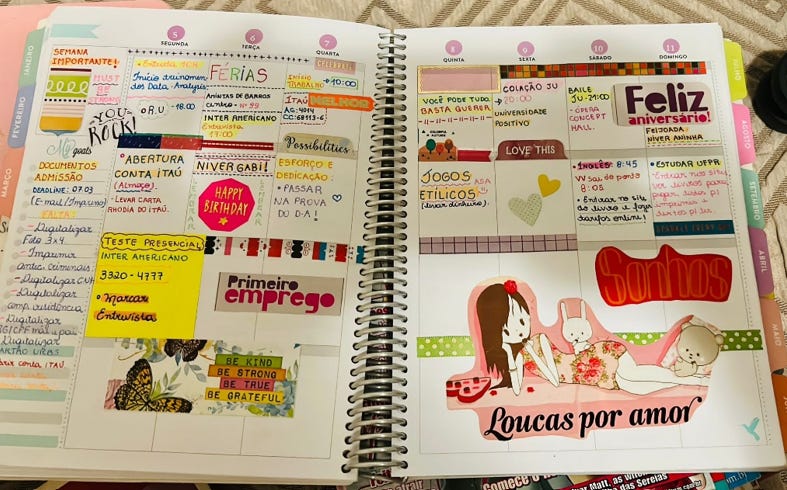 JANEIRO
FEVEREIRO
MARÇO
5
SEGUNDA
6
TERÇA
7
QUARTA
SEMANA
IMPORTANTE!
MUST
BE
STRONG
YOU
ROCK!
My goals
DOCUMENTOS
ADMISSÃO
DEADLINE: 07.03
(E-mail/Impresso)
FALTA:
- Digitalizar
Foto 3x4
- Imprimir
antec. criminais
- Digitalizar CNH
- Digitalizar
comp. residência
Digitalizar
RG/CPF mãe e pai
CARTÃO URBS
abrir conta ITAÚ
• Entrada 10H
Início treinamen-
tos Data-Analysis
• R.U - 18:00
• ABERTURA
CONTA ITAÚ
(Almoço).
• LEVAR CARTA
RHODIA DO ITAÚ.
TESTE PRESENCIAL
INTER AMERICANO
3320-4777
• Marcar
Entrevista
FÉRIAS
AMINTAS DE BARROS
CENTRO - Nº 99
INTER AMERICANO
Entrevista
17:00
NIVER GABI!
HAPPY
BIRTHDAY
CELEBRATE
INÍCIO
TRABALHO
→ 10:00
ITAÚ
MELHOR
AG: 4014
CC: 68113-6
Possibilities
ESFORÇO E
DEDICAÇÃO:
• PASSAR
NA PROVA
DO D.A!
Primeiro
emprego
BE KIND
BE STRONG
BE TRUE
BE GRATEFUL
8
QUINTA
9
SEXTA
10
SÁBADO
11
DOMINGO
VOCÊ PODE TUDO.
BASTA QUERER
JOGOS
ETÍLICOS
(levar dinheiro).
COLAÇÃO JU
→ 20:00
UNIVERSIDADE
POSITIVO
LOVE THIS
BAILE
JU - 21:00
• OPERA
CONCEPT
HALL.
• INGLÊS 8:45
8:05
• Entrar no site
do livro e fazer
tarefas online!
Feliz
aniversário!
FEIJOADA
NIVER ANINHA
• ESTUDAR UFPR
- Entrar no site
Sonhos
Loucas por amor
JULHO
AGOSTO
SETEMBRO
ABRIL
MAIO